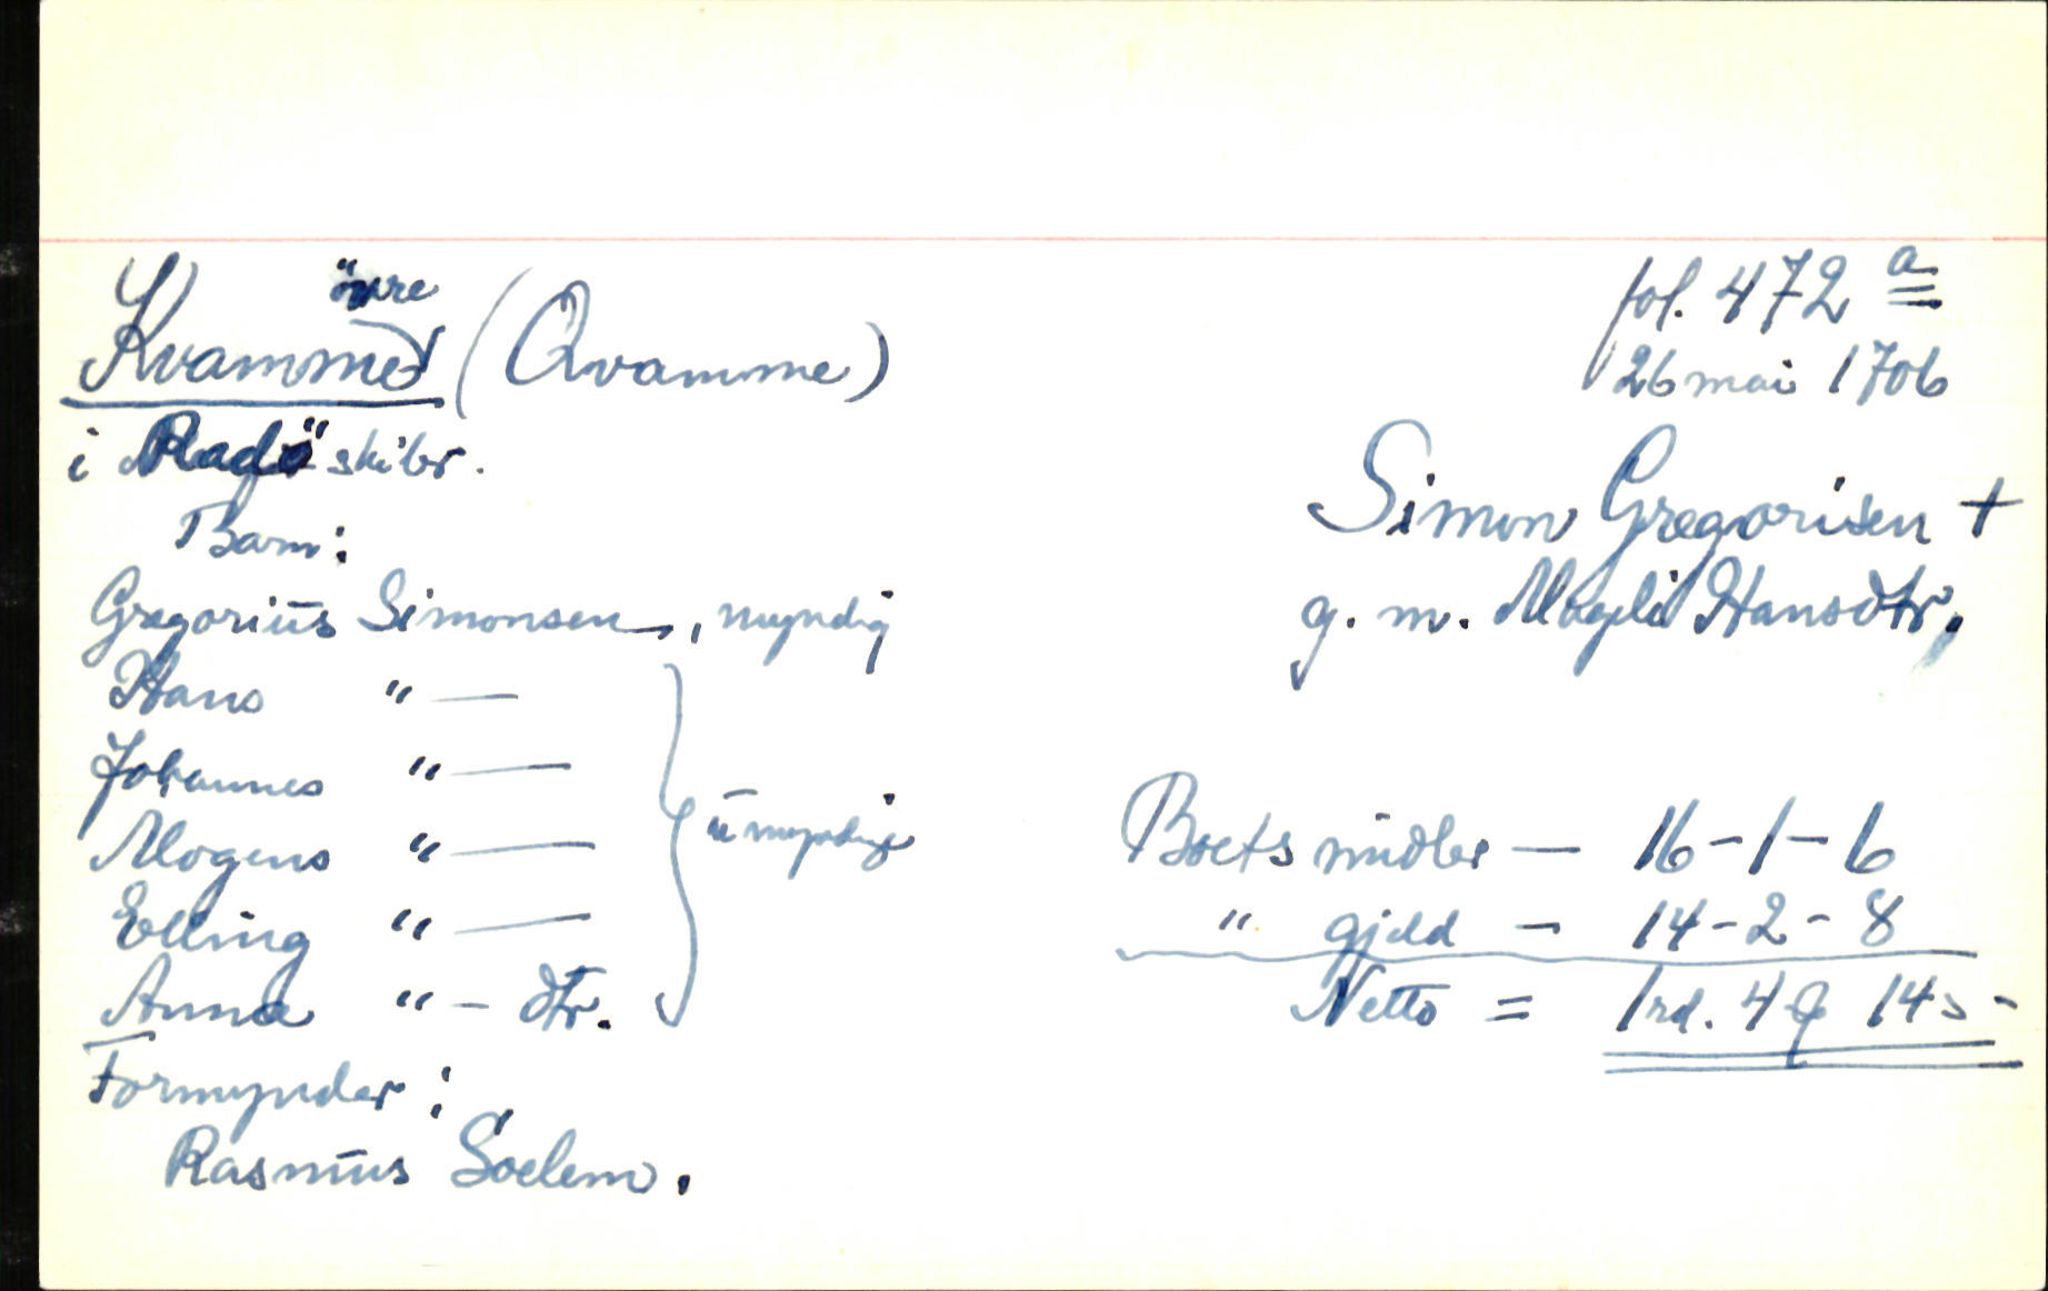 övre
Kvamme (Qvamme)
i Radö skibr.
Barn:
Gregorius Simonsen, myndig
Hans " —
Johannes " —
Mogens " —
Elling " —
Anna " — dtr.
umyndige
Formynder:
Rasmus Soelem.
fol. 472 a
26 mai 1706
Simon Gregorisen +
g. m. Magli Hansdtr.
Boets midler — 16-1-6
" gjeld — 14-2-8
Netto = 1 rd. 4 14 s -